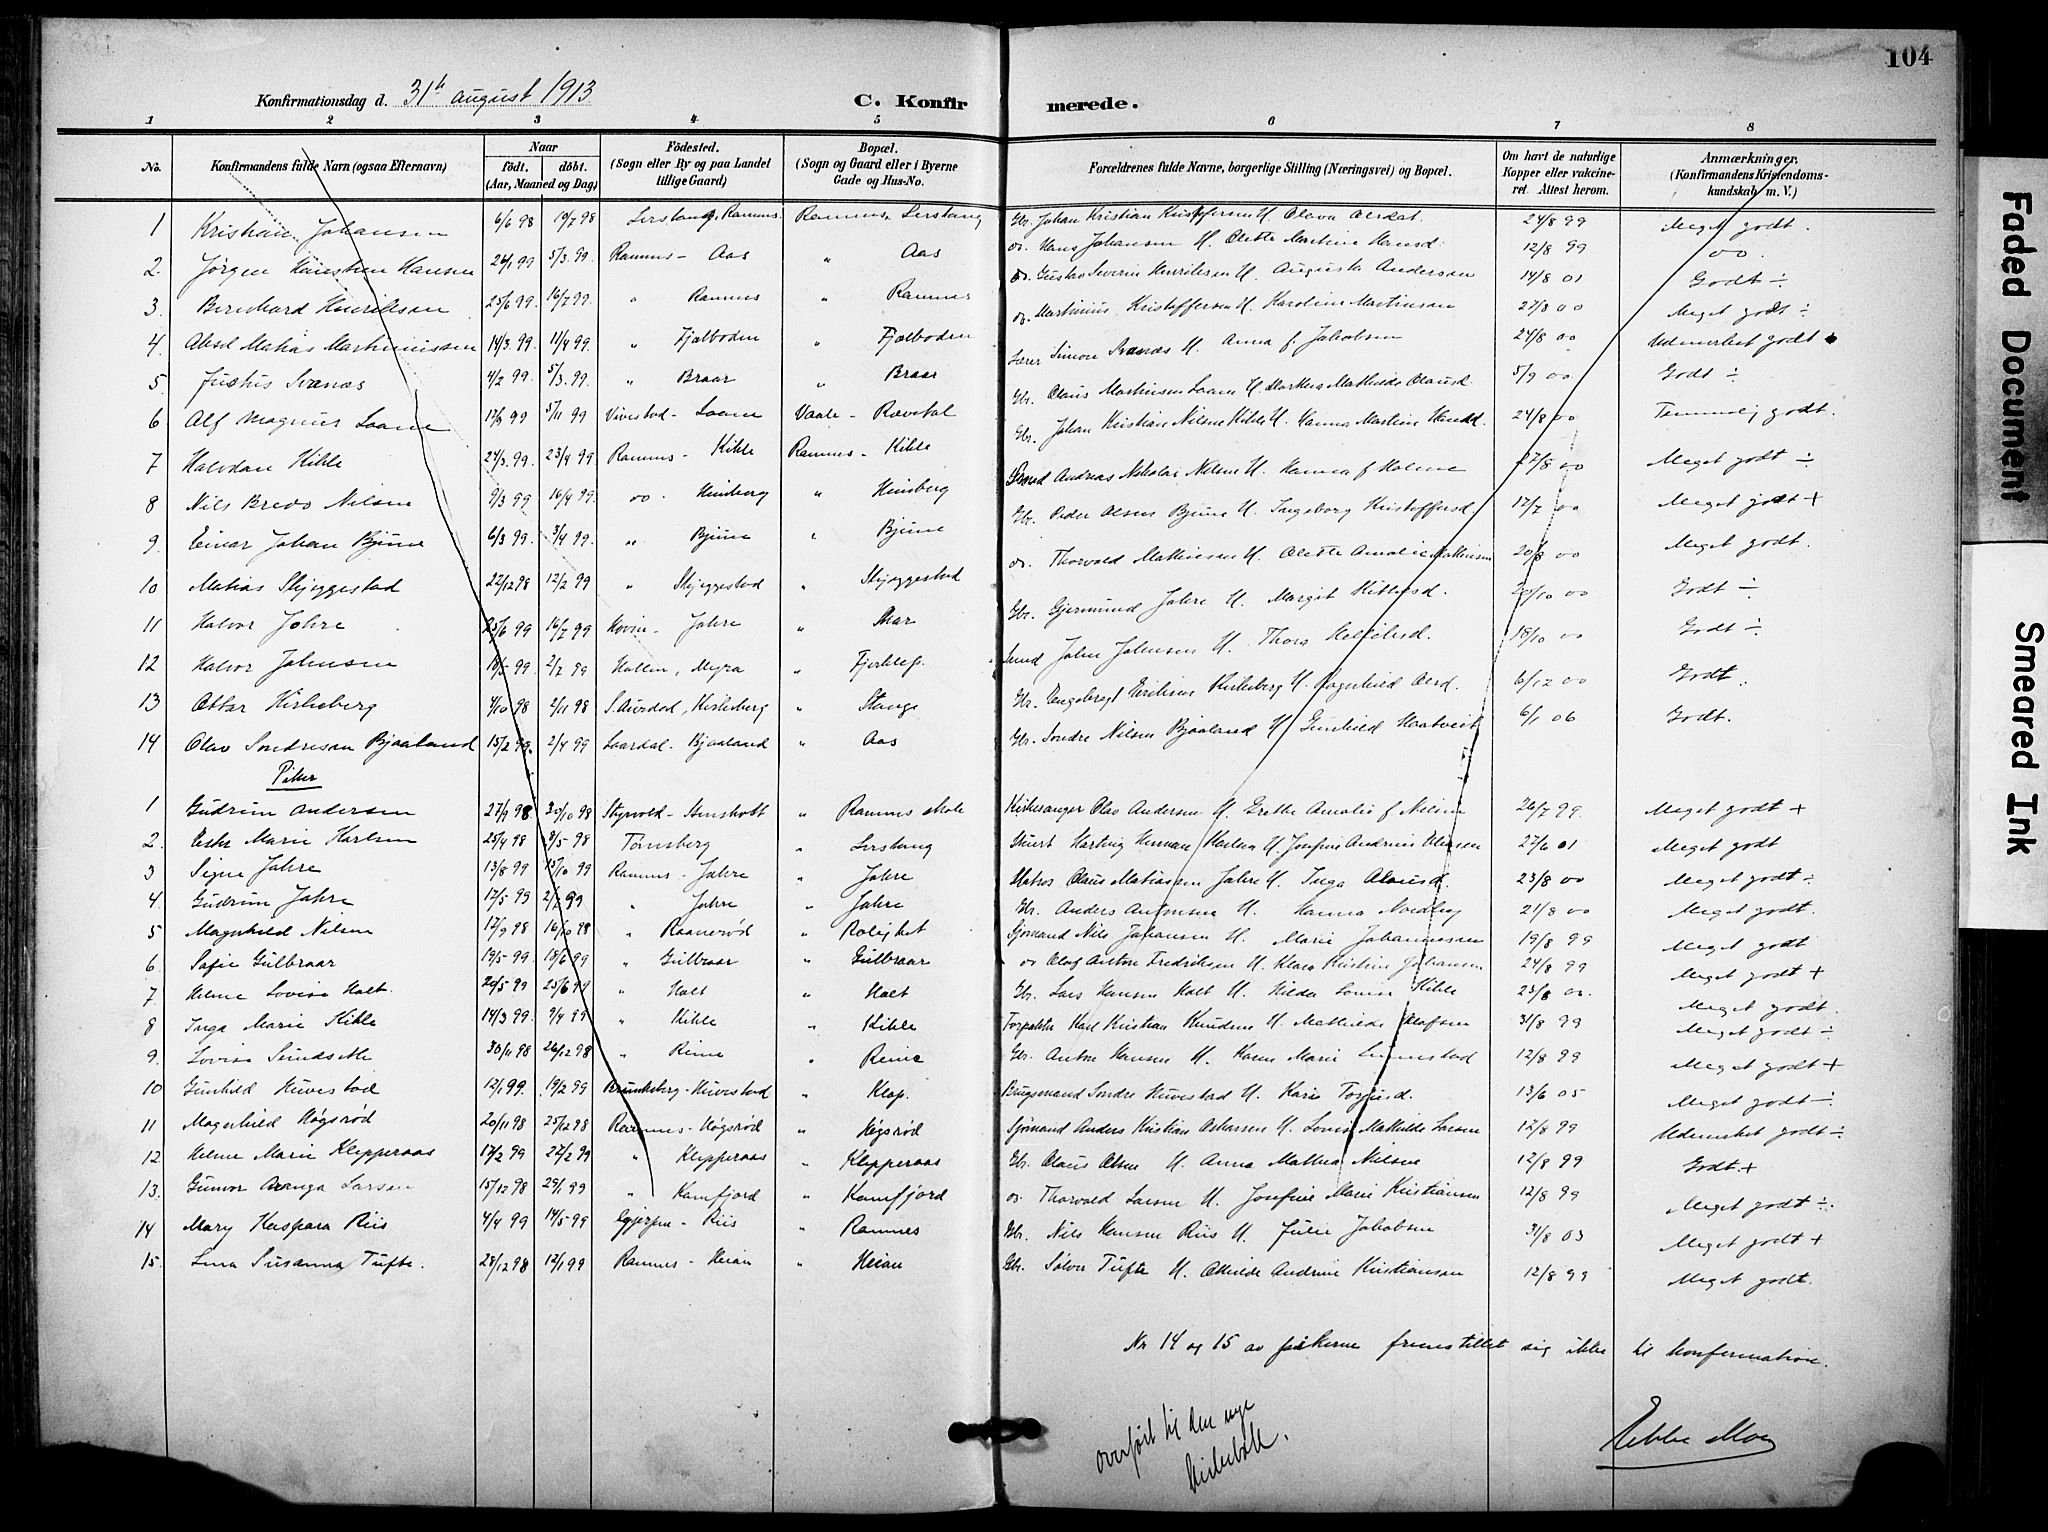 104
Konfirmationsdag d. 31te august 1913
C. Konfirmerede.
1 2 3 4 5 6 7 8
No. Konfirmandens fulde Navn (ogsaa Efternavn) Naar født. døbt. (Aar, Maaned og Dag) Fødested. (Sogn eller By og paa Landet tillige Gaard) Bopæl. (Sogn og Gaard eller i Byerne Gade og Hus-No. Forældrenes fulde Navne, borgerlige Stilling (Næringsvei) og Bopæl. Om havt de naturlige Kopper eller vakcineret. Attest herom. Anmærkninger. (Konfirmandens Kristendomskundskab m. V.)
1 Kristian Johansen 6/6 98 10/7 98 Lerstang, Ramnes Ramnes Lerstang Gbr. Johan Kristian Kristoffersen U. Olava Olsdat. 24/8 99 Meget godt.
2. Jørgen Hansen 5/3 99. Ramnes - Aas " Aas do. Hans Johansen U. Olette Martine Hansd. 12/8 99 do.
3. Bernhard Henriksen 25/6 99. 16/7 99. " Ramnes " Ramnes do. Gustav Severin Henriksen U. Augusta Andersen 14/8 01 Godt ÷
4. Aksel Matias Martiniussen 14/3 99. 11/4 99. " Fjælboden " Fjælboden do. Martinius Kristoffersen U. Karoline Martinsen 27/8 00 Meget godt ÷
5. Justus Svanæs 4/2 99. 5/3 99. " Braar " Braar Lærer Simon Svanæs U. Anna f. Jakobsen 24/8 00 Udmerket godt
6 Alf Magnus Laane 5/11 99 Vivestad - Laane Vaale - Rævetal Gbr. Claus Martinsen Laane U. Marthea Mathilde Olausd. 5/9 00 Godt ÷
7 Halvdan Kihle 24/3 99. 23/4 99 Ramnes - Kihle Ramnes - Kihle Gbr. Johan Kristian Nilsen Kihle U. Hanna Martine 24/8 00 Temmelig godt.
8 Nils Bredo Nilsen 9/3 99 16/4 99. do. Heinberg " Heinberg Smed Andreas Nikolai Nilsen U. Hanna f. Holme 27/8 00 Meget godt ÷
9. Einar Johan Bjune 6/3 99. 3/4 99. " Bjune " Bjune Gbr. Peder Olsen Bjune U. Ingeborg Kristoffersd. 12/7 00 Meget godt +
10 Matias Skjeggestad 22/12 98 12/2 99 " Skjeggestad " Skjeggestad do. Thorvald Mathisen U. Olette Amalie Mathisen 20/8 00 Meget godt.
11 Halvor Jahre 25/6 99 16/7 99 Hovin - Jahre " Skar Gbr. Gjermund Jahre U. Margit Kittilsd. 20/10 00 Godt ÷
12 Halvor Johnsen 2/7 99 Hallen, Myra " Smed John Johnsen U. Thora 18/10 00 Godt ÷
13 Ottar Kirkeberg 4/10 98 2/11 98 S. Aurdal, Kirkeberg " Stange Gbr. Engebregt Eriksen Kirkeberg U. Ragnhild Olsd. 6/12 00 Godt
14 Olav Sondresen Bjaaland 15/2 99. 2/4 99 Laardal - Bjaaland " Aas Gbr. Sondre Nilsen Bjaaland U. Gunhild Haatveit 6/1 06 Godt.
Piker
1 Gudrun Andersen 27/9 98 30/10 98 Styrvold - Stensholt " Ramnes skole Kirkesanger Olav Andersen U. Grethe Amalie f. Nilsen 26/7 99 Meget godt +
2. Marie Karlsen 25/4 98 9/5 98 Tønsberg " Lerstang Stuert Hartvig Herman Karlsen U. Josefine Andrine Nilsen 27/6 01 Meget godt
3 Signe Jahre 13/8 99 15/10 99 Ramnes - Jahre " Jahre Matros Olaus Matiassen Jahre U. Inga Olausd. 23/8 00 Meget godt ÷
4. Gudrun Jahre 17/5 99 2/7 99 " Jahre " Jahre Gbr. Anders Antonsen U. Hanna Nordbey 21/8 00 Meget godt.
5 Magnhild Nilsen 17/9 98 16/10 98 " Raanerød " Rolighet Sjømand Nils Johansen U. Marie Johannesen 19/8 99 Meget godt
6 Sofie Gulbraar 19/5 99 18/6 99 " Gulbraar " Gulbraar do Olaf Anton Fredriksen U. Klara Kristine Johansen 24/8 99 Meget godt +
7 Helene Lovise Holt 20/5 99 25/6 99 " Holt " Holt Gbr. Lars Hansen Holt U. Hilda Lovise Kihle 23/8 00. Meget godt.
8 Inga Marie Kihle 14/3 99. 9/4 99 " Kihle " Kihle Karl Kristian Knudsen U. Mathilde Olafsen 31/8 99 Meget godt ÷
9. Lovise 30/11 98 26/12 98 " Reine " Reine Gbr. Anton Hansen U. Karen Marie Linnestad 12/8 99 Meget godt +
10 Gunhild Huvestad 12/1 99. 19/2 99 Brunkeberg - Huvestad " Klop. Brugsmand Sondre Huvestad U. Kari Torjusd. 13/6 05 Meget godt ÷
11 Magnhild Høgsrød 20/11 98 25/12 98 Ramnes - Høgsrød " Høgsrød Sjømand Anders Kristian Oskarsen U. Lovise Mathilde Larsen 12/8 99 Udmerket godt ÷
12 Helene Marie Klepperaas 17/2 99 27/2 99 " Klepperaas " Klepperaas Gbr. Olaus Olsen U. Anna Mathea Nilsen 12/8 99 Godt +
13. Gunvor Aranga Larsen 15/12 98 29/1 99 " Kamfjord " Kamfjord do Thorvald Larsen U. Josefine Marie Kristiansen 12/8 99 Meget godt ÷
14 Mary Kaspara Riis 4/4 99 14/5 99 Gjerpen - Riis " Ramnes Gbr. Nils Hansen Riis U. Julie Jakobsen 31/8 03 Meget godt +
15. Lina Susanna Tufte. 28/12 98 12/1 99 Ramnes - Heian " Heian Gbr. Sølver Tufte U. Othilde Andrine Kristiansen 12/8 99 Meget godt.
Nr 14 og 15 av pikerne fremstillet sig ikke til konfirmation.
Overført til den nye
kirkebok.
Ebbe Moe
Faded Document
Smeared Ink